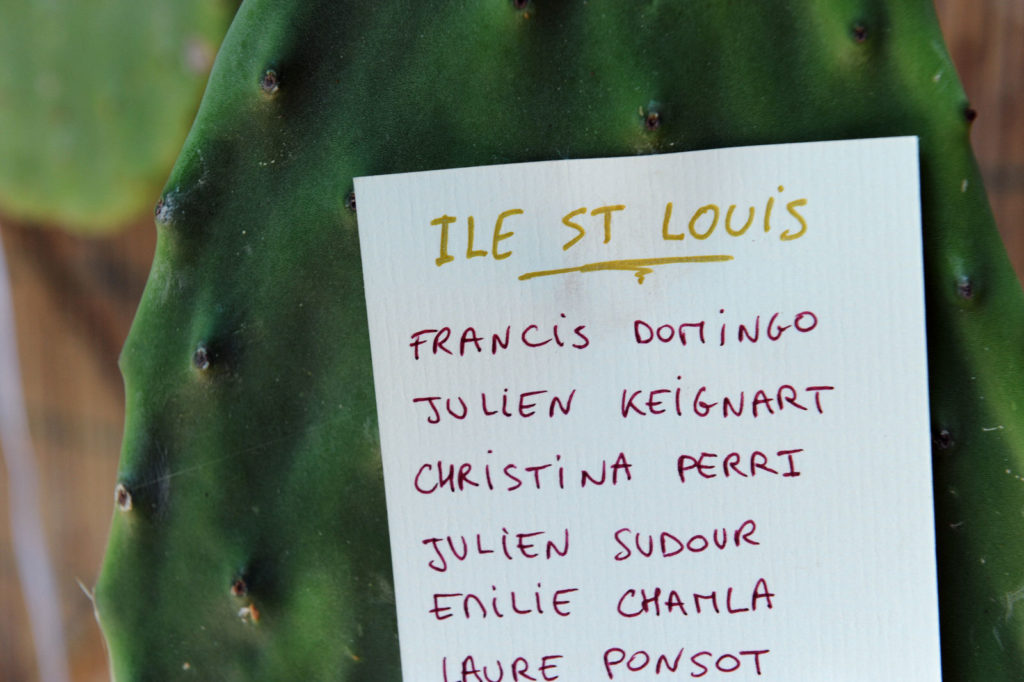 ILE ST LOUIS
FRANCIS DOMINGO
JULIEN KEIGNART
CHRISTINA PERRI
JULIEN SUDOUR
EMILIE CHAMLA
LAURE PONSOT